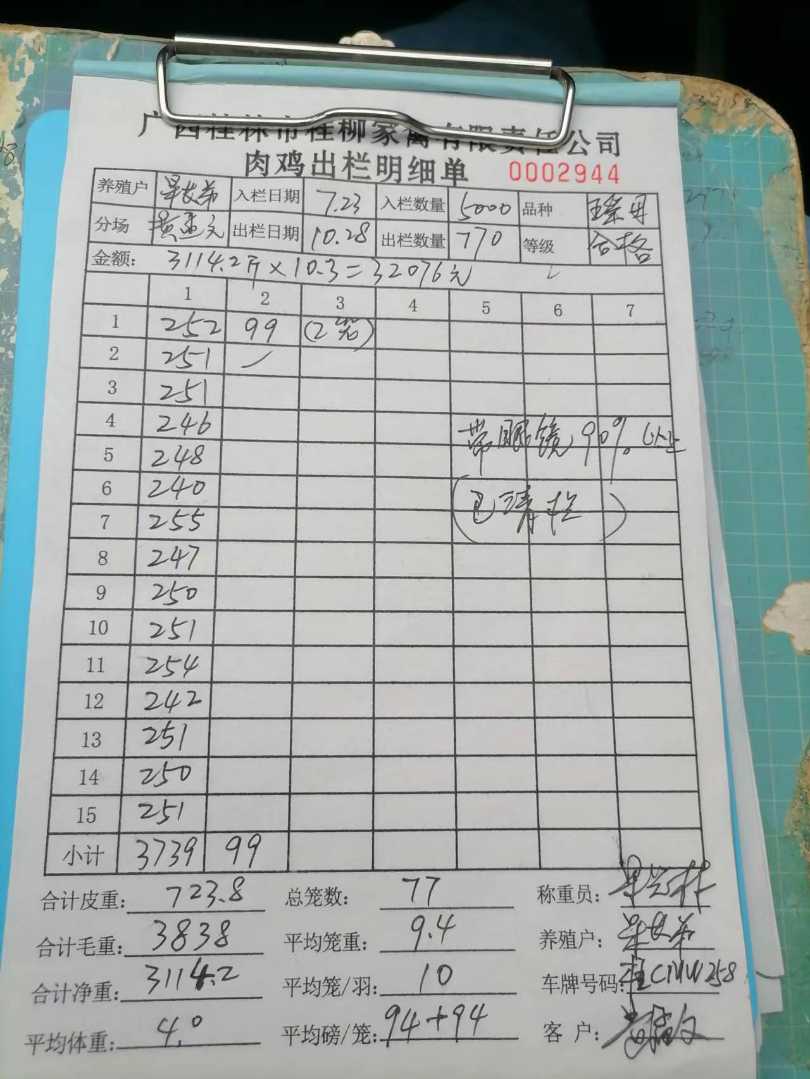 广西桂林市桂柳家禽有限责任公司
肉鸡出栏明细单 0002944
养殖户 入栏日期 7.23 入栏数量 5000 品种
分场 出栏日期 10.28 出栏数量 770 等级 合格
金额: 3114.2斤×10.3=32076元
1 2 3 4 5 6 7
1 252 99 (2笼)
2 251
3 251
4 246 带眼镜90%以上
5 248
6 240 (已清栏)
7 255
8 247
9 250
10 251
11 254
12 242
13 251
14 250
15 251
小计 3739 99
合计皮重: 723.8 总笼数: 77 称重员:
合计毛重: 3838 平均笼重: 9.4 养殖户:
合计净重: 3114.2 平均笼/羽: 10 车牌号码:
平均体重: 4.0 平均磅/笼: 94+94 客 户: